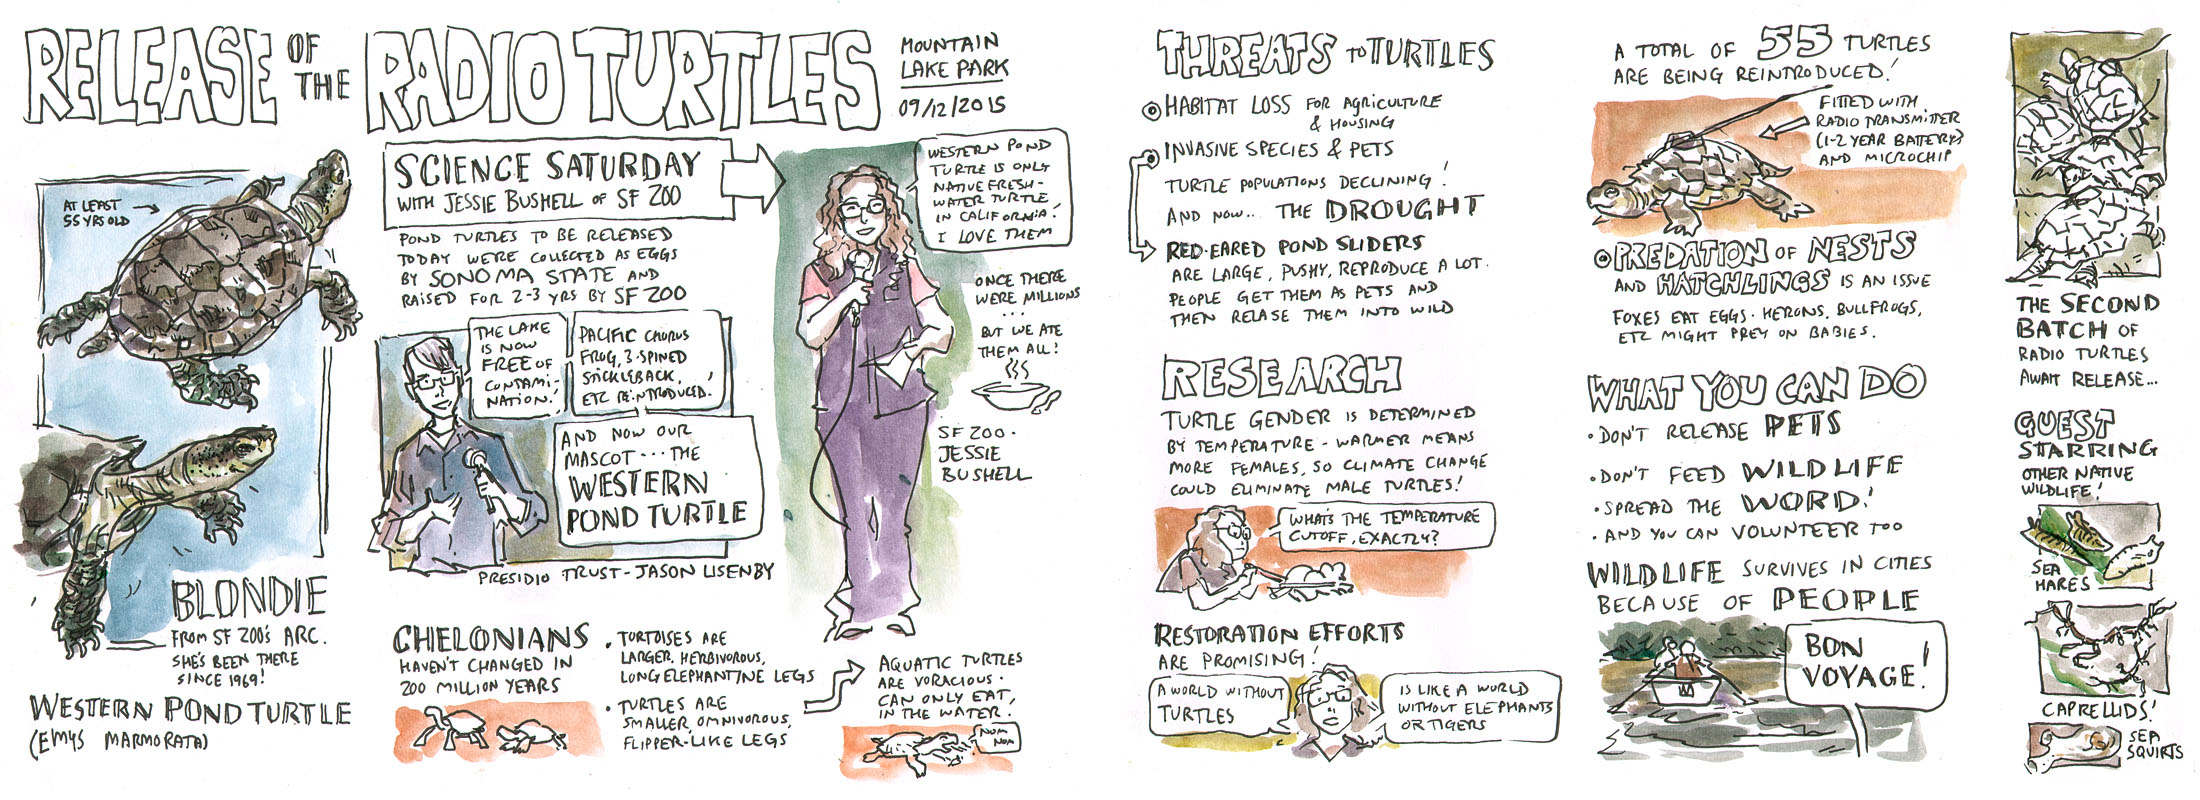 RELEASE OF THE RADIO TURTLES
MOUNTAIN
LAKE PARK
09/12/2015
AT LEAST
55 YRS OLD
BLONDIE
FROM SF ZOO'S ARC.
SHE'S BEEN THERE
SINCE 1969!
WESTERN POND TURTLE
(EMYS MARMORATA)
SCIENCE SATURDAY
WITH JESSIE BUSHELL OF SF ZOO
POND TURTLES TO BE RELEASED
TODAY WERE COLLECTED AS EGGS
BY SONOMA STATE AND
RAISED FOR 2-3 YRS BY SF ZOO
THE LAKE
IS NOW
FREE OF
CONTAMI-
NATION!
PACIFIC CHORUS
FROG, 3-SPINED
STICKLEBACK,
ETC REINTRODUCED!
AND NOW OUR
MASCOT... THE
WESTERN
POND TURTLE
PRESIDIO TRUST - JASON LISENBY
WESTERN POND
TURTLE IS ONLY
NATIVE FRESH-
WATER TURTLE
IN CALIFORNIA!
I LOVE THEM
ONCE THERE
WERE MILLIONS
...
BUT WE ATE
THEM ALL!
SF ZOO -
JESSIE
BUSHELL
CHELONIANS
HAVEN'T CHANGED IN
200 MILLION YEARS
• TORTOISES ARE
LARGER, HERBIVOROUS,
LONG ELEPHANTINE LEGS
• TURTLES ARE
SMALLER, OMNIVOROUS,
FLIPPER-LIKE LEGS
AQUATIC TURTLES
ARE VORACIOUS.
CAN ONLY EAT
IN THE WATER!
NOM
NOM
THREATS TO TURTLES
HABITAT LOSS FOR AGRICULTURE
& HOUSING
INVASIVE SPECIES & PETS
TURTLE POPULATIONS DECLINING!
AND NOW... THE DROUGHT
RED-EARED POND SLIDERS
ARE LARGE, PUSHY, REPRODUCE A LOT.
PEOPLE GET THEM AS PETS AND
THEN RELASE THEM INTO WILD
RESEARCH
TURTLE GENDER IS DETERMINED
BY TEMPERATURE - WARMER MEANS
MORE FEMALES, SO CLIMATE CHANGE
COULD ELIMINATE MALE TURTLES!
WHAT'S THE TEMPERATURE
CUTOFF, EXACTLY?
RESTORATION EFFORTS
ARE PROMISING!
A WORLD WITHOUT
TURTLES
IS LIKE A WORLD
WITHOUT ELEPHANTS
OR TIGERS
A TOTAL OF 55 TURTLES
ARE BEING REINTRODUCED!
FITTED WITH
RADIO TRANSMITTER
(1-2 YEAR BATTERY)
AND MICROCHIP
PREDATION OF NESTS
AND HATCHLINGS IS AN ISSUE
FOXES EAT EGGS. HERONS, BULLFROGS,
ETC MIGHT PREY ON BABIES.
WHAT YOU CAN DO
• DON'T RELEASE PETS
• DON'T FEED WILDLIFE
• SPREAD THE WORD!
• AND YOU CAN VOLUNTEER TOO
WILDLIFE SURVIVES IN CITIES
BECAUSE OF PEOPLE
BON
VOYAGE!
THE SECOND
BATCH OF
RADIO TURTLES
AWAIT RELEASE...
GUEST
STARRING
OTHER NATIVE
WILDLIFE!
SEA
HARES
CAPRELLIDS!
SEA
SQUIRTS